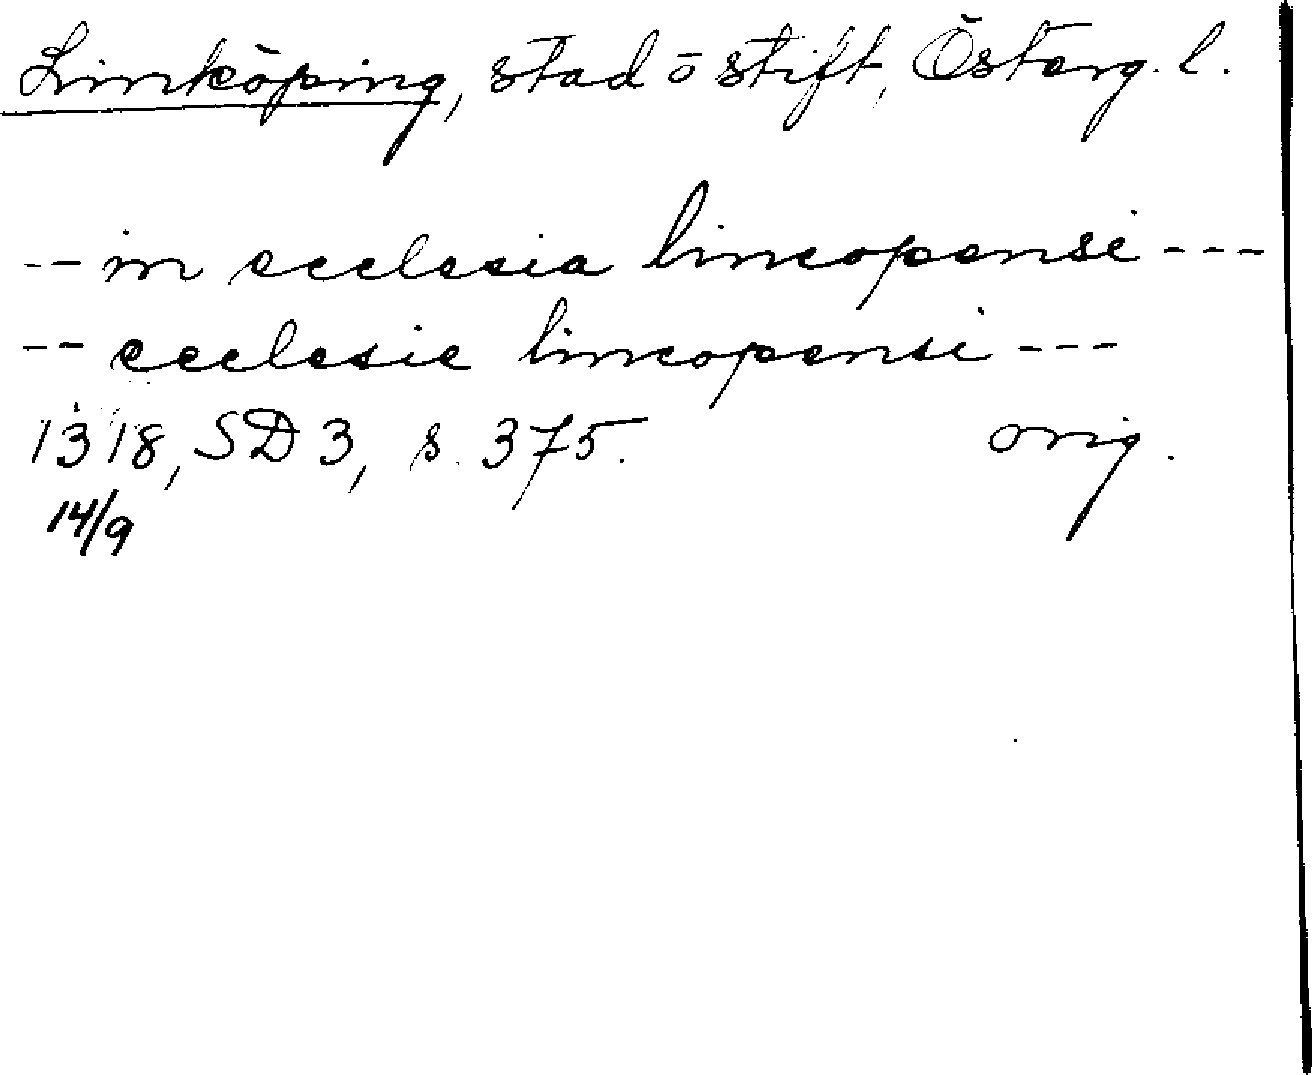 Linköping, stad o stift, Österg. l.
-- in ecclesia lincopensi ---
-- ecclesie lincopensi ---
1318, SD 3, s. 375. orig.
14/9